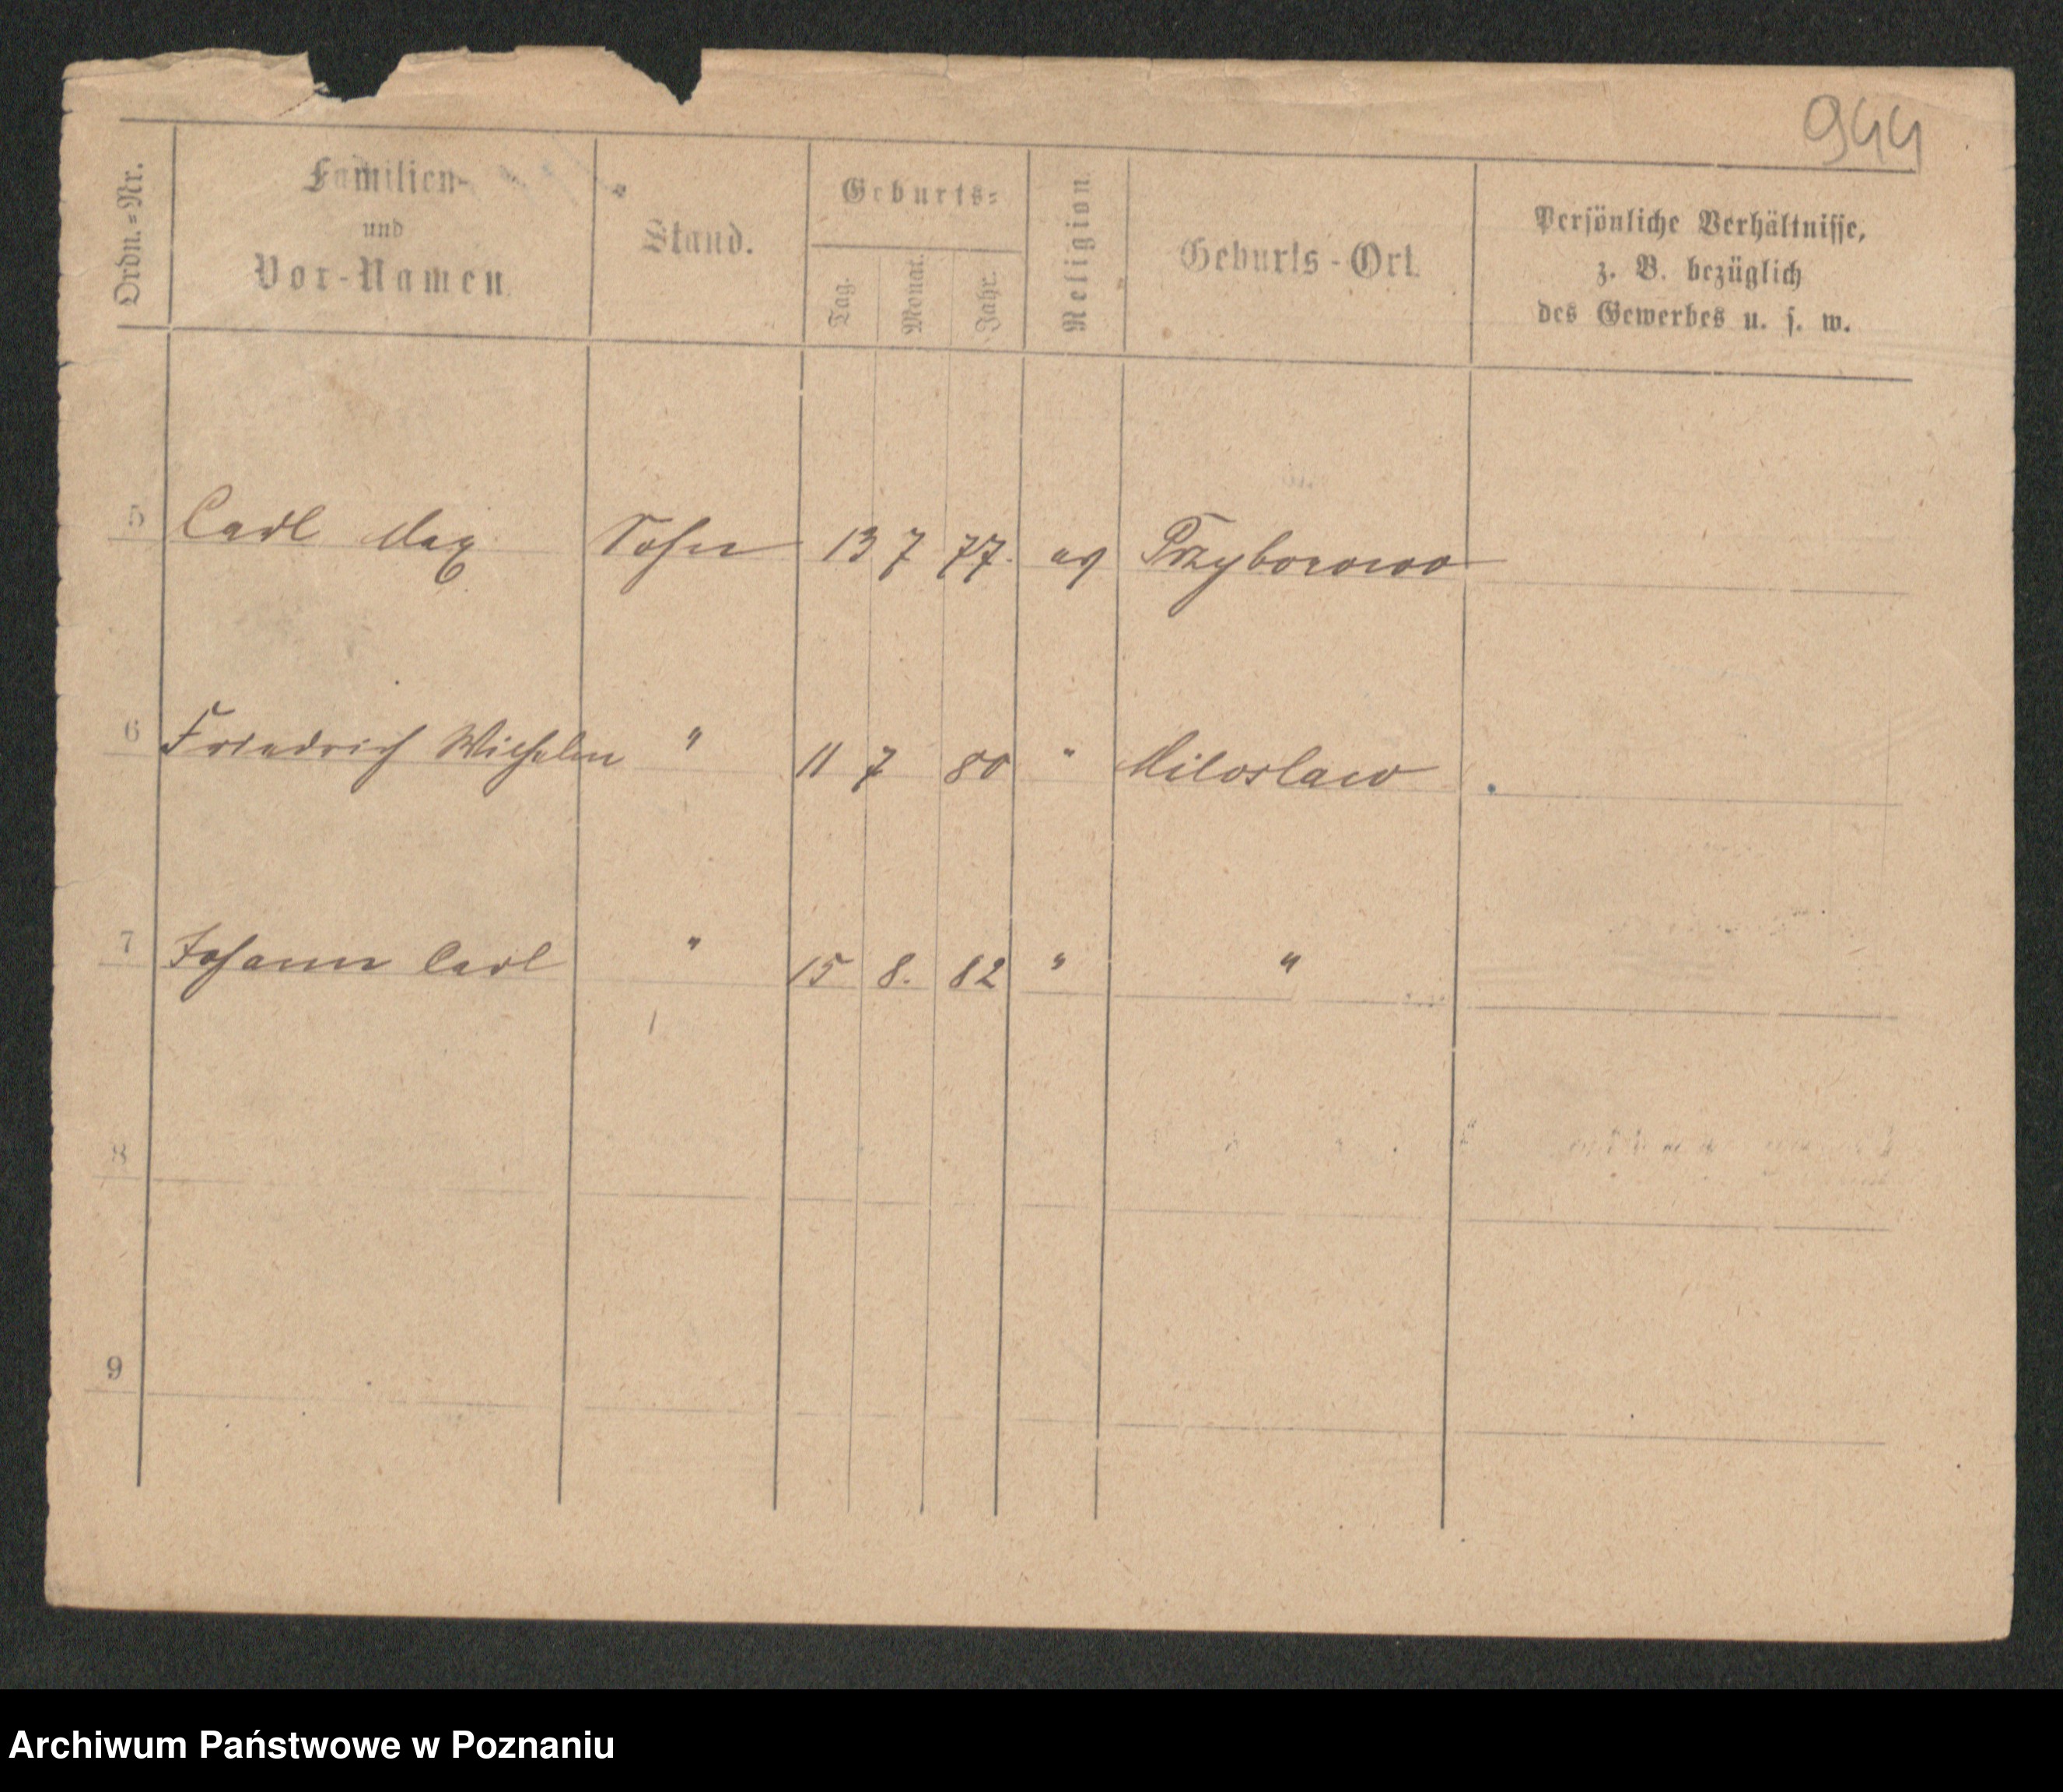 944
Ordn.-Nr.
Familien-
und
Vor-Namen
Stand.
Geburts-
Tag.
Monat.
Jahr.
Religion
Geburts-Ort
Persönliche Verhältnisse,
z. B. bezüglich
des Gewerbes u. s. w.
5 Carl Max Sohn 13 7 77. ev Przyborowo
6 Friedrich Wilhelm " 11 7 80 " Miloslaw
7 Johann Carl " 15 8. 82 " "
8
9
Archiwum Państwowe w Poznaniu